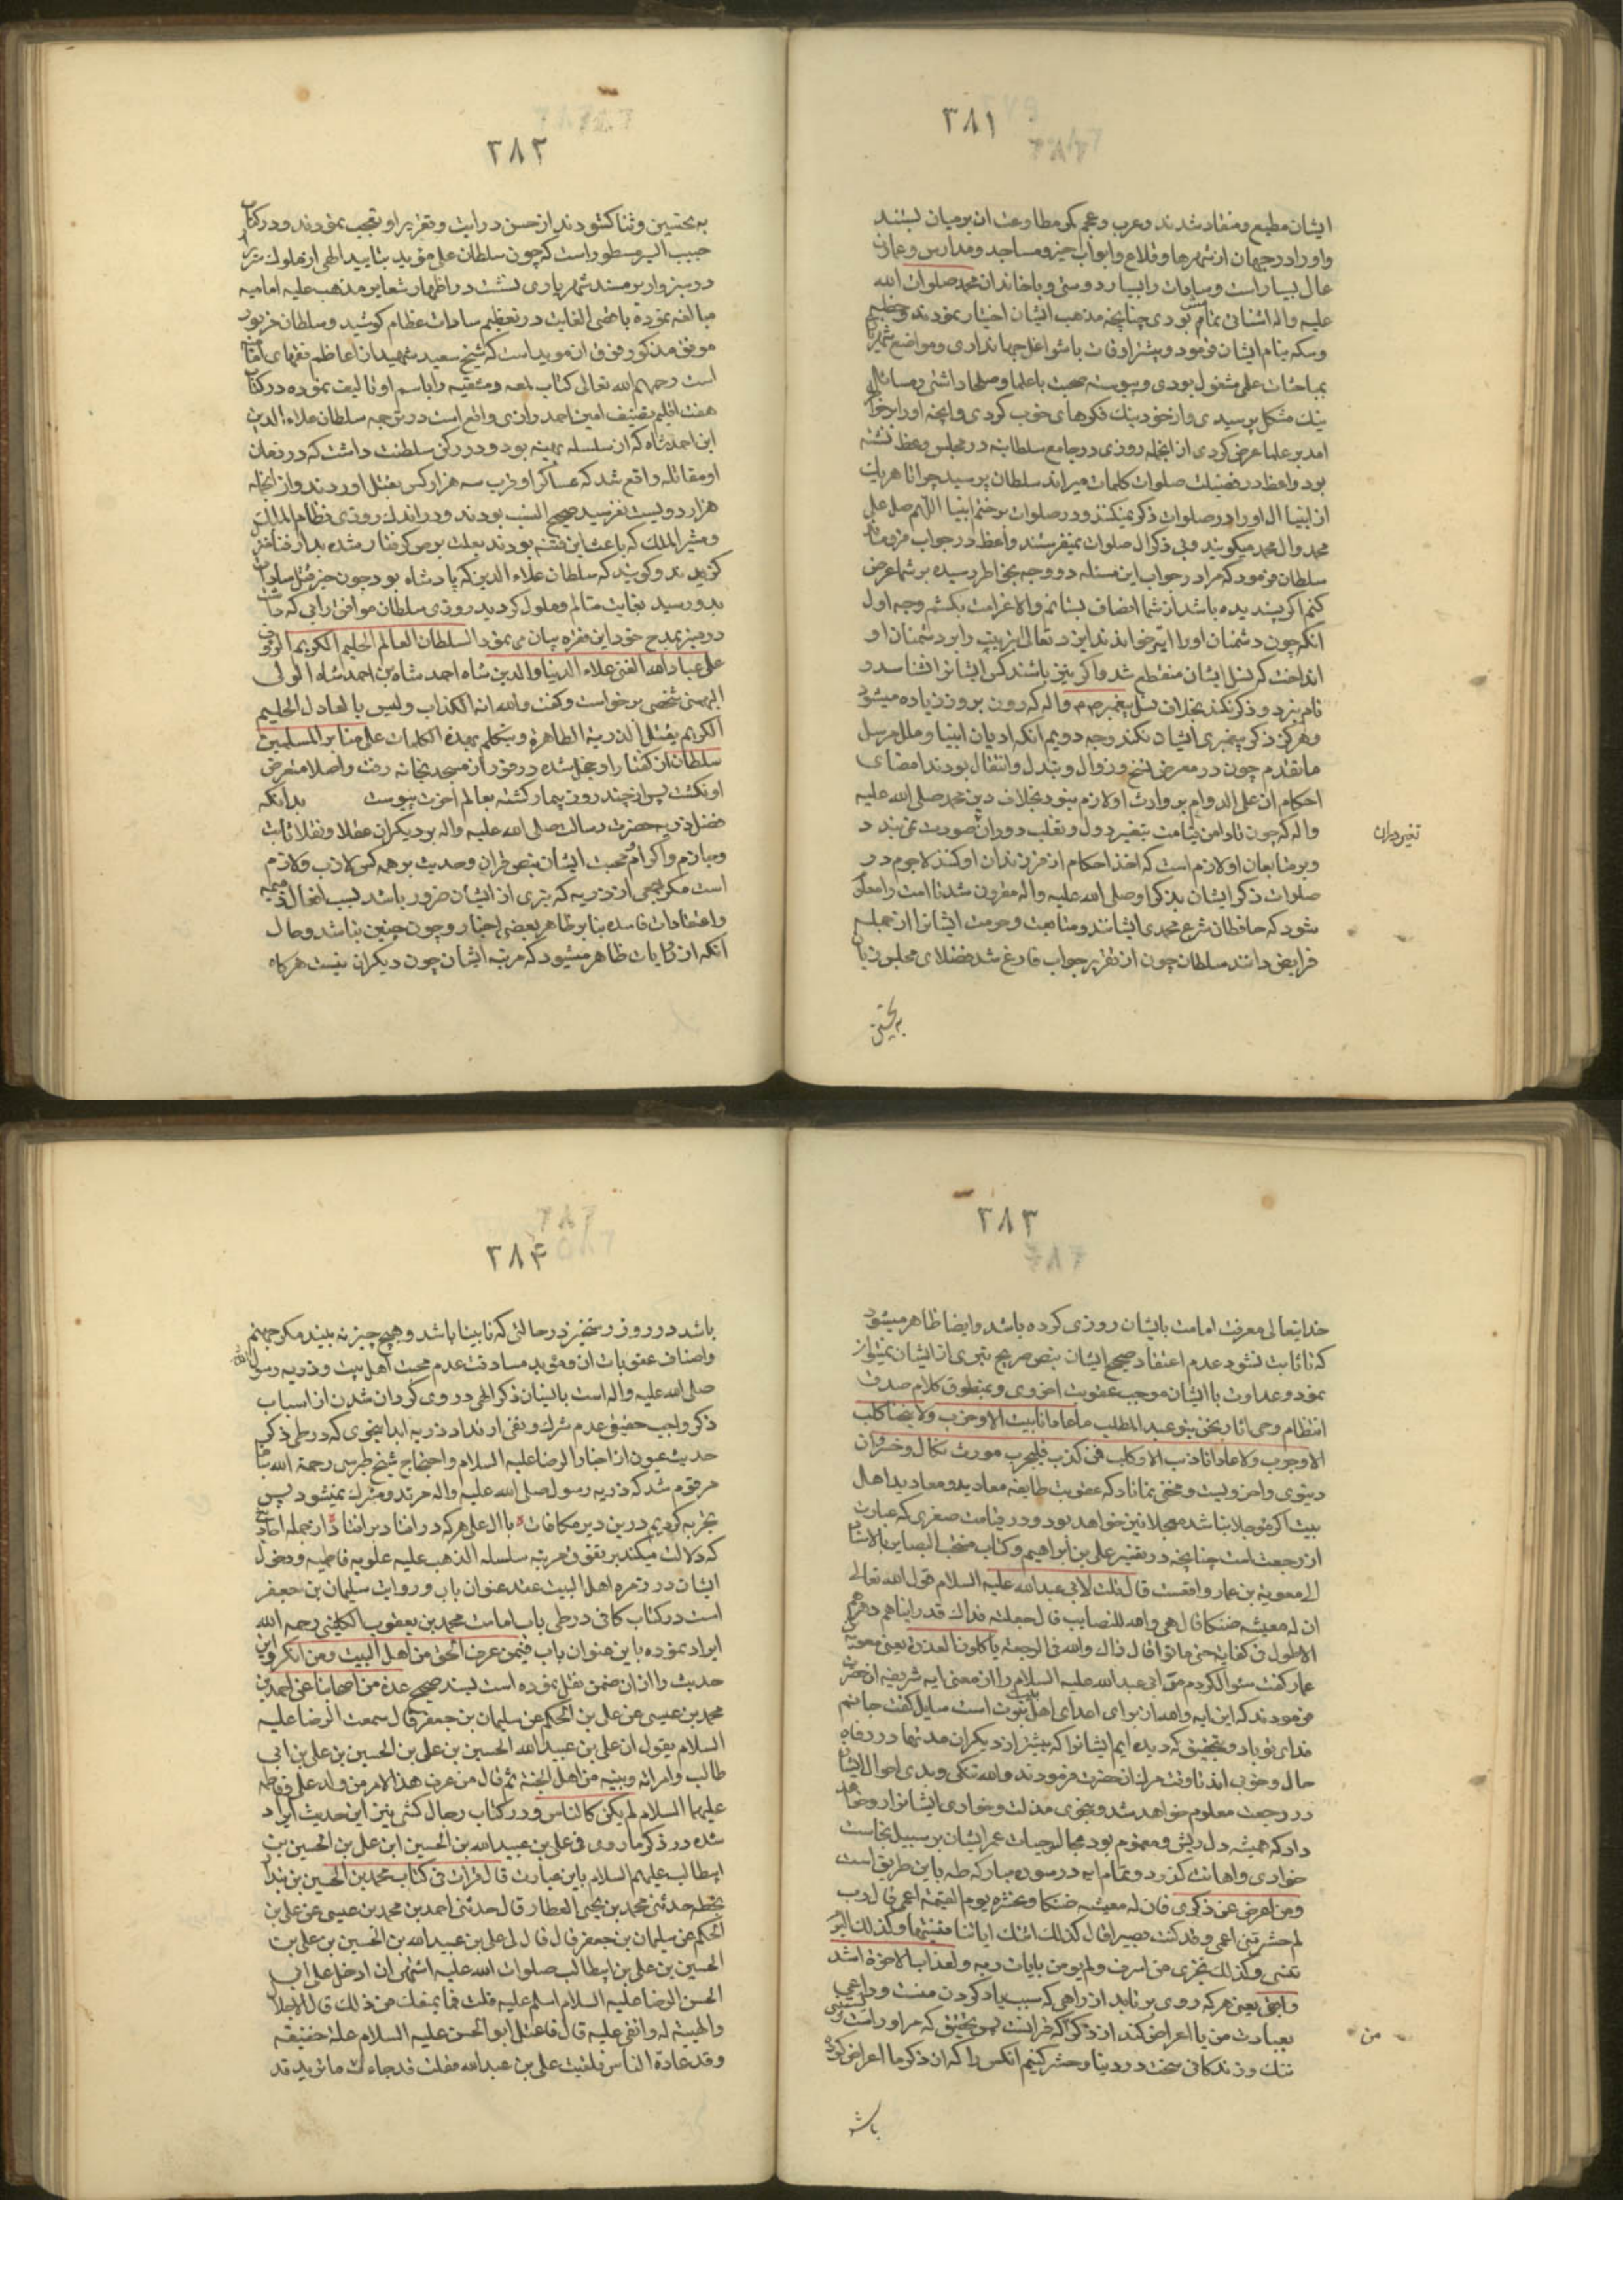 ۲۸۱
ایشان مطیع و منقاد شدند و عرب و عجم کمر مطاوعت ان بر میان بستند
و او را در جهان از شهرها و قلاع و ابواب خیر و مساجد و مدارس و عمارت
عال بسیار است و سادات را بسیار دوستی و با خاندان محمد صلوات الله
علیه و اله اشنائی تمام بودی چنانچه مذهب ایشان اختیار نمودند و خطبه
و سکه بنام ایشان فرمود و بیشتر اوقات با شواغل جهانداری و مواضع شهریاری
بمباحثات علمی مشغول بودی و پیوسته صحبت با علما و صلحا داشتی و مسائل
نیک مشکل پرسیدی و از خود نیک فکرهای خوب کردی و انچه او را بر خواطر
امد بر علما عرض کردی از انجمله روزی در جامع سلطانیه در مجلس وعظ نشسته
بود واعظ در فضیلت صلوات کلمات میراند سلطان پرسید چرا تا هر یک
از انبیا ال او را در صلوات ذکر نمیکنند و در صلوات بر ختم انبیا اللهم صل علی
محمد و ال محمد میگویند و بی ذکر ال صلوات نمیفرستند واعظ در جواب فرو ماند
سلطان فرمود که مرا در جواب این مسئله دو وجه بخاطر رسیده بر شما عرض
کنم اگر پسندیده باشد از شما انصاف بستانم و الا غرامت بکشم وجه اول
انکه چون دشمنان او را ابتر خواندند ایزد تعالی ابتریت را بر دشمنان او
انداخت که نسل ایشان منقطع شد و اگر نیز باشند کس ایشانرا نشناسد و
نام نبرد و ذکر نکند بخلاف نسل پیغمبر ص م و اله که روز بروز زیاده میشود
و هرگز ذکر پیغمبری ایشان نکند وجه دویم انکه ادیان انبیا و ملل مرسل
ما تقدم چون در معرض نسخ و زوال و تبدل و انتقال بودند امضای
احکام ان علی الدوام بر وارث او لازم نبود بخلاف دین محمد صلی الله علیه
و اله که چون تا دامن قیامت بتغیر دول و تقلب دوران صورت نمی بندد
و بر متابعان او لازم است که اخذ احکام از فرزندان او کنند لاجرم در
صلوات ذکر ایشان بذکر او صلی الله علیه و اله مقرون شد تا امت را معلوم
شود که حافظان شرع محمدی ایشانند و متابعت و حرمت ایشانرا از جمله
فرایض دانند سلطان چون از تقریر جواب فارغ شد فضلای مجلس زبان
تغیر دوران
به تحسین
۲۸۲
به تحسین و ثنا کشودند از حسن درایت و تقریر او تعجب نمودند و در کتاب
حبیب السیر مسطور است که چون سلطان علی مؤید بتایید الهی از ملوک سربدار
در سبزوار بر مسند شهریاری نشست در اظهار شعایر مذهب علیه امامیه
مبالغه نموده باقصی الغایت در تعظیم سادات عظام کوشید و سلطان مزبور
موفق مذکور موفق ان موید است که شیخ سعید شهید از اعاظم فقهای امامیه
است رحمهم الله تعالی کتاب لمعه دمشقیه را باسم او تالیف نموده در کتاب
هفت اقلیم تصنیف امین احمد رازی واقع است در ترجمه سلطان علاء الدین
ابن احمد شاه که از سلسله بهمنیه بود و در دکن سلطنت داشت که در زمان
او مقاتله واقع شد که عساکر او قرب سه هزار کس بقتل اوردند و از انجمله
هزار و دویست نفر سید صحیح النسب بودند و در اندک روزی نظام الملک
و مشیر الملک که باعث این فتنه بودند بعلت برص گرفتار شده بدار فنا منزل
گزیدند و گویند که سلطان علاء الدین که پادشاه بود چون خبر قتل سادات
بدو رسید بغایت متالم و ملول گردید روزی سلطان موافق رایی که داشت
در منبر بمدح خود این فقره بیان می نمود السلطان العالم الحلیم الکریم الرؤف
علی عباد الله الغنی علاء الدنیا و الدین شاه احمد شاه بن احمد شاه الولی
البهمنی شخصی برخواست و گفت والله انت الکذاب و لیس بالعادل الحلیم
الکریم یقتل الذریة الطاهرة و یتکلم بهذه الکلمات علی منابر المسلمین
سلطان از ان گفتار او خجل شده در فور از مسجد بخانه رفت و اصلا متعرض
او نگشت پس از چند روز بیمار گشته بعالم اخرت پیوست بدانکه
فضل ذریه حضرت رسالت صلی الله علیه و اله بر دیگران عقلا و نقلا ثابت
و جازم و اکرام و محبت ایشان بنص قران و حدیث بر همه کس لازب و لازم
است مگر جمعی از ذریه که تبری از ایشان ضرور باشد بسبب افعال ذمیمه
و اعتقادات فاسده بنا بر ظاهر بعضی اخبار و چون چنین نباشد و حال
آنکه از روایات ظاهر میشود که مرتبه ایشان چون دیگران نیست هرگاه
۲۸۳
خدایتعالی معرفت امامت بایشان روزی کرده باشد و ایضا ظاهر میشود
که تا ثابت نشود عدم اعتقاد صحیح ایشان بنص صریح تبری از ایشان نمیتواند
نمود و عداوت با ایشان موجب عقوبت اخروی و بمنطوق کلام صدق
انتظام وحی اثار نحن بنو عبد المطلب ما عادانا بیت الا و خرب و لا نبحنا کلب
الا و جرب و لا عادانا ذئب الا و کلب فمن کذب فلیجرب مورث نکال و خسران
دنیوی و اخرویست و مخفی نماناد که عقوبت طایفه معاندین و معاندین اهل
بیت اگر مؤجلا نباشد معجلا نیز خواهد بود و در قیامت صغری که عبارت
از رجعت است چنانچه در تفسیر علی بن ابراهیم و کتاب منتخب البصایر بالاسناد
الی معویة بن عمار واقعست قال قلت لابی عبد الله علیه السلام قول الله تعالی
ان له معیشة ضنکا قال هی والله للنصاب قال جعلت فداک قد رایناهم دهرهم
الاطول فی کفایة حتی ماتوا قال ذاک والله فی الرجعة یاکلون العذرة یعنی معویه
عمار گفت سئوال کردم من ابی عبد الله علیه السلام را از معنی ایه شریفه ان حضرت
فرمودند که این ایه والله از برای اعدای اهل بیت نبوت است سایل گفت جانم
فدای تو باد و بتحقیق که دیده ایم ایشانرا که بیشتر از دیگران مدتها در رفاه
حال و خوبی اند تا وقت مرگ ان حضرت فرمودند والله تنگی و بدی احوال ایشان
در رجعت معلوم خواهد شد و بنحوی مذلت و خواری ایشانرا رو خواهد
داد که همیشه دل ریش و مغموم بود مجال حیات عمر ایشان بر سبیل نجاست
خواری و اهانت گذرد و تمام ایه در سوره مبارکه طه باین طریق است
و من اعرض عن ذکری فان له معیشة ضنکا و نحشره یوم القیمة اعمی قال رب
لم حشرتنی اعمی و قد کنت بصیرا قال کذلک اتتک ایاتنا فنسیتها و کذلک الیوم
تنسی و کذلک نجزی من اسرف و لم یؤمن بایات ربه و لعذاب الاخرة اشد
و ابقی یعنی هر که روی بر تابد از راهی که سبب یاد کردن منست و داعی
بعبادت من یا اعراض کند از ذکر که قرانست پس بتحقیق که مر او راست زیستنی
تنک و زندگانی سخت در دنیا و حشر کنیم انکس را که از ذکر ما اعراض کرده
من
باشد
۲۸۴
باشد در روز رستخیز در حالتی که نابینا باشد و هیچ چیز نه بیند مگر جهنم
و اصناف عقوبات ان و مؤید مسادقت عدم محبت اهل بیت و ذریه رسول الله
صلی الله علیه و اله است بالیشان ذکر الهی در روی گردان شدن از اسباب
ذکر واجب حقیقی عدم شرک و نفی ارتداد ذریه ابدا بنحوی که در طی ذکر
حدیث عیون از اخبار الرضا علیه السلام و احتجاج شیخ طبرسی رحمة الله
مرقوم شد که ذریه رسول صلی الله علیه و اله مرتد و مشرک نمیشود پس
تجربه کردیم درین دیر مکافات با ال علی هر که در افتاد بر افتاد از جمله احادیث
که دلالت میکند بر تفوق مرتبه سلسلة الذهب علیه علویه فاطمیه و دخول
ایشان در زمره اهل البیت عند عنوان باب و روایت سلیمان بن جعفر
است در کتاب کافی در طی باب امامت محمد بن یعقوب الکلینی رحمه الله
ایراد نموده باین عنوان باب فیمن عرف الحق من اهل البیت و من انکر و این
حدیث را از ان ضمن نقل نموده است بسند صحیح عدة من اصحابنا عن احمد بن
محمد بن عیسی عن علی بن الحکم عن سلیمان بن جعفر قال سمعت الرضا علیه
السلام یقول ان علی بن عبید الله الحسین بن علی بن الحسین بن علی بن ابی
طالب و امراته و بنیه من اهل الجنة ثم قال من عرف هذا الامر من ولد علی و فاطمه
علیهما السلام لم یکن کالناس و در کتاب رجال کشی نیز این حدیث ایراد
شده در ذکر ما روی فی علی بن عبید الله بن الحسین ابن علی بن الحسین بن
ابیطالب علیهم السلام باین عبارت قال قرات فی کتاب محمد بن الحسین بن بندار
بخطه حدثنی محمد بن یحیی العطار قال حدثنی احمد بن محمد بن عیسی عن علی بن
الحکم عن سلیمان بن جعفر قال قال لی علی بن عبید الله بن الحسین بن علی بن
الحسین بن علی بن ابیطالب صلوات الله علیه اشتهی ان ادخل علی ابی
الحسن الرضا علیه السلام اسلم علیه قلت فما یمنعک من ذلک قال الاجلال
و الهیبة له و اتقی علیه قال فاعتل ابو الحسن علیه السلام علة خفیفه
و قد عادة الناس فلقیت علی بن عبد الله فقلت قد جاءک ما ترید قد